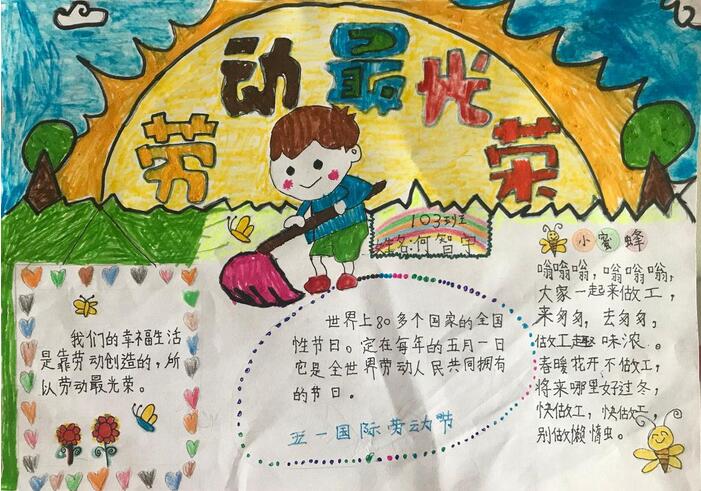 劳动最光荣
103班
姓名:何智宇
我们的幸福生活
是靠劳动创造的，所
以劳动最光荣。
世界上80多个国家的全国
性节日。定在每年的五月一日
它是全世界劳动人民共同拥有
的节日。
五一国际劳动节
小蜜蜂
嗡嗡嗡，嗡嗡嗡，
大家一起来做工，
来匆匆，去匆匆，
做工趣味浓。
春暖花开不做工，
将来哪里好过冬，
快做工，快做工，
别做懒惰虫。